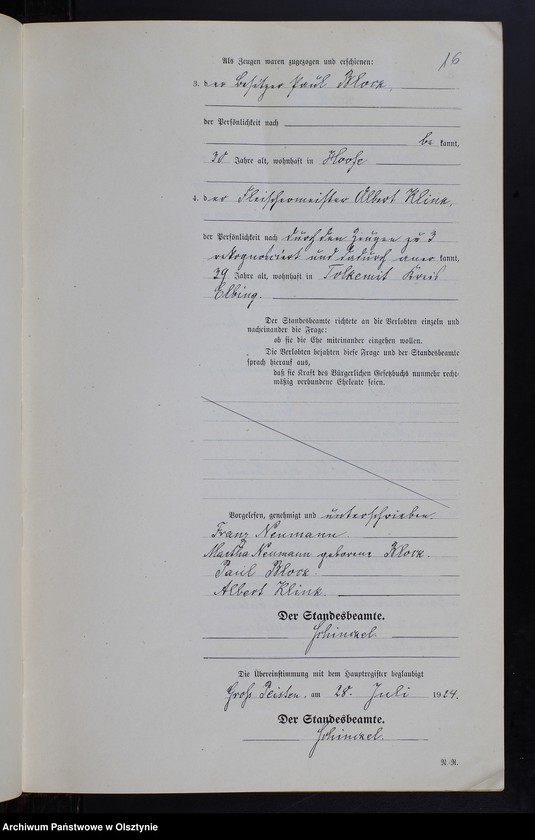 16
Als Zeugen waren zugezogen und erschienen:
3. der Besitzer Paul Block
der Persönlichkeit nach
be kannt,
30 Jahre alt, wohnhaft in Hoofe
4. der Fleischermeister Albert Klink,
der Persönlichkeit nach durch den Zeugen zu 3
rekognosziert und dadurch aner kannt,
39 Jahre alt, wohnhaft in Tolkemit Kreis
Elbing.
Der Standesbeamte richtete an die Verlobten einzeln und
nacheinander die Frage:
ob sie die Ehe miteinander eingehen wollen.
Die Verlobten bejahten diese Frage und der Standesbeamte
sprach hierauf aus,
daß sie kraft des Bürgerlichen Gesetzbuchs nunmehr recht-
mäßig verbundene Eheleute seien.
Vorgelesen, genehmigt und unterschrieben.
Franz Neumann
Martha Neumann geborene Block.
Paul Block
Albert Klink.
Der Standesbeamte.
Schinckel
Die Übereinstimmung mit dem Hauptregister beglaubigt
Groß Peisten, am 28. Juli 1924.
Der Standesbeamte.
Schinckel.
N.-R.
Archiwum Państwowe w Olsztynie